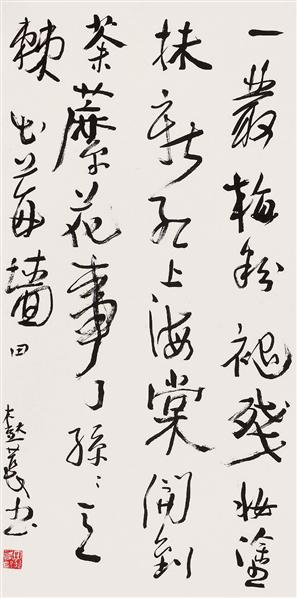 一叢梅粉褪殘妝塗
抹新紅上海棠開到
荼蘼花事了絲〻天
棘出莓墻
書